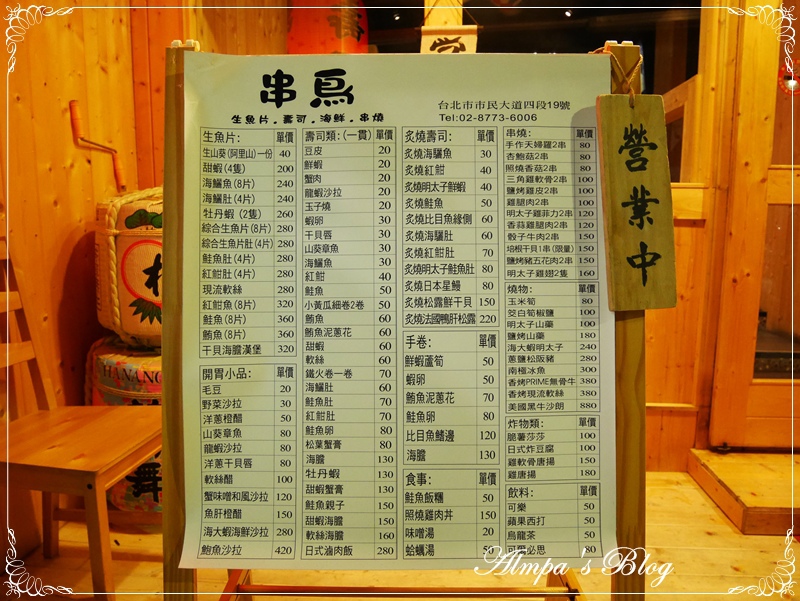 串鳥
生魚片.壽司.海鮮.串燒
台北市市民大道四段19號
Tel:02-8773-6006
營業中
生魚片: 單價
生山葵(阿里山)一份 40
甜蝦(4隻) 200
海鱺魚(8片) 240
海鱺肚(4片) 240
牡丹蝦(2隻) 260
綜合生魚片(8片) 280
綜合生魚片肚(4片) 280
鮭魚肚(4片) 280
紅魽肚(4片) 280
現流軟絲 280
紅魽魚(8片) 320
鮭魚(8片) 360
鮪魚(8片) 360
干貝海膽漢堡 320
開胃小品: 單價
毛豆 20
野菜沙拉 30
洋蔥橙醋 50
山葵章魚 80
龍蝦沙拉 80
洋蔥干貝唇 80
軟絲醋 100
蟹味噌和風沙拉 120
魚肝橙醋 150
海大蝦海鮮沙拉 280
鮑魚沙拉 420
壽司類:(一貫) 單價
豆皮 20
鮮蝦 20
蟹肉 20
龍蝦沙拉 20
玉子燒 20
蝦卵 30
干貝唇 30
山葵章魚 30
海鱺魚 30
紅魽 40
鮭魚 50
小黃瓜細卷2卷 50
鮪魚 60
鮪魚泥蔥花 60
甜蝦 60
軟絲 60
鐵火卷一卷 70
海鱺肚 60
鮭魚肚 70
紅魽肚 70
鮭魚卵 80
松葉蟹膏 80
海膽 130
牡丹蝦 130
甜蝦蟹膏 130
鮭魚親子 150
甜蝦海膽 150
軟絲海膽 160
日式滷肉飯 280
炙燒壽司: 單價
炙燒海鱺魚 30
炙燒紅魽 40
炙燒明太子鮮蝦 40
炙燒鮭魚 50
炙燒比目魚緣側 60
炙燒海鱺肚 60
炙燒紅魽肚 70
炙燒明太子鮭魚肚 80
炙燒日本星鰻 80
炙燒松露鮮干貝 150
炙燒法國鴨肝松露 220
手卷: 單價
鮮蝦蘆筍 50
蝦卵 50
鮪魚泥蔥花 70
鮭魚卵 80
比目魚鰭邊 120
海膽 130
食事: 單價
鮭魚飯糰 50
照燒雞肉丼 150
味噌湯 20
蛤蠣湯 50
串燒: 單價
手作天婦羅2串 80
杏鮑菇2串 80
照燒香菇2串 80
三角雞軟骨2串 100
鹽烤雞皮2串 100
雞腿肉2串 100
明太子雞菲力2串 120
香蒜雞腿肉2串 120
骰子牛肉2串 150
培根干貝1串(限量) 150
鹽烤豬五花肉2串 150
明太子雞翅2隻 160
燒物: 單價
玉米筍 80
筊白筍椒鹽 100
明太子山藥 100
鹽烤山藥 180
海大蝦明太子 240
蔥鹽松阪豬 280
南極冰魚 300
香烤PRIME無骨牛 380
香烤現流軟絲 380
美國黑牛沙朗 880
炸物類: 單價
脆薯莎莎 100
日式炸豆腐 100
雞軟骨唐揚 150
雞唐揚 180
飲料: 單價
可樂 50
蘋果西打 50
烏龍茶 50
可爾必思 80
Almpa's Blog
HANANO